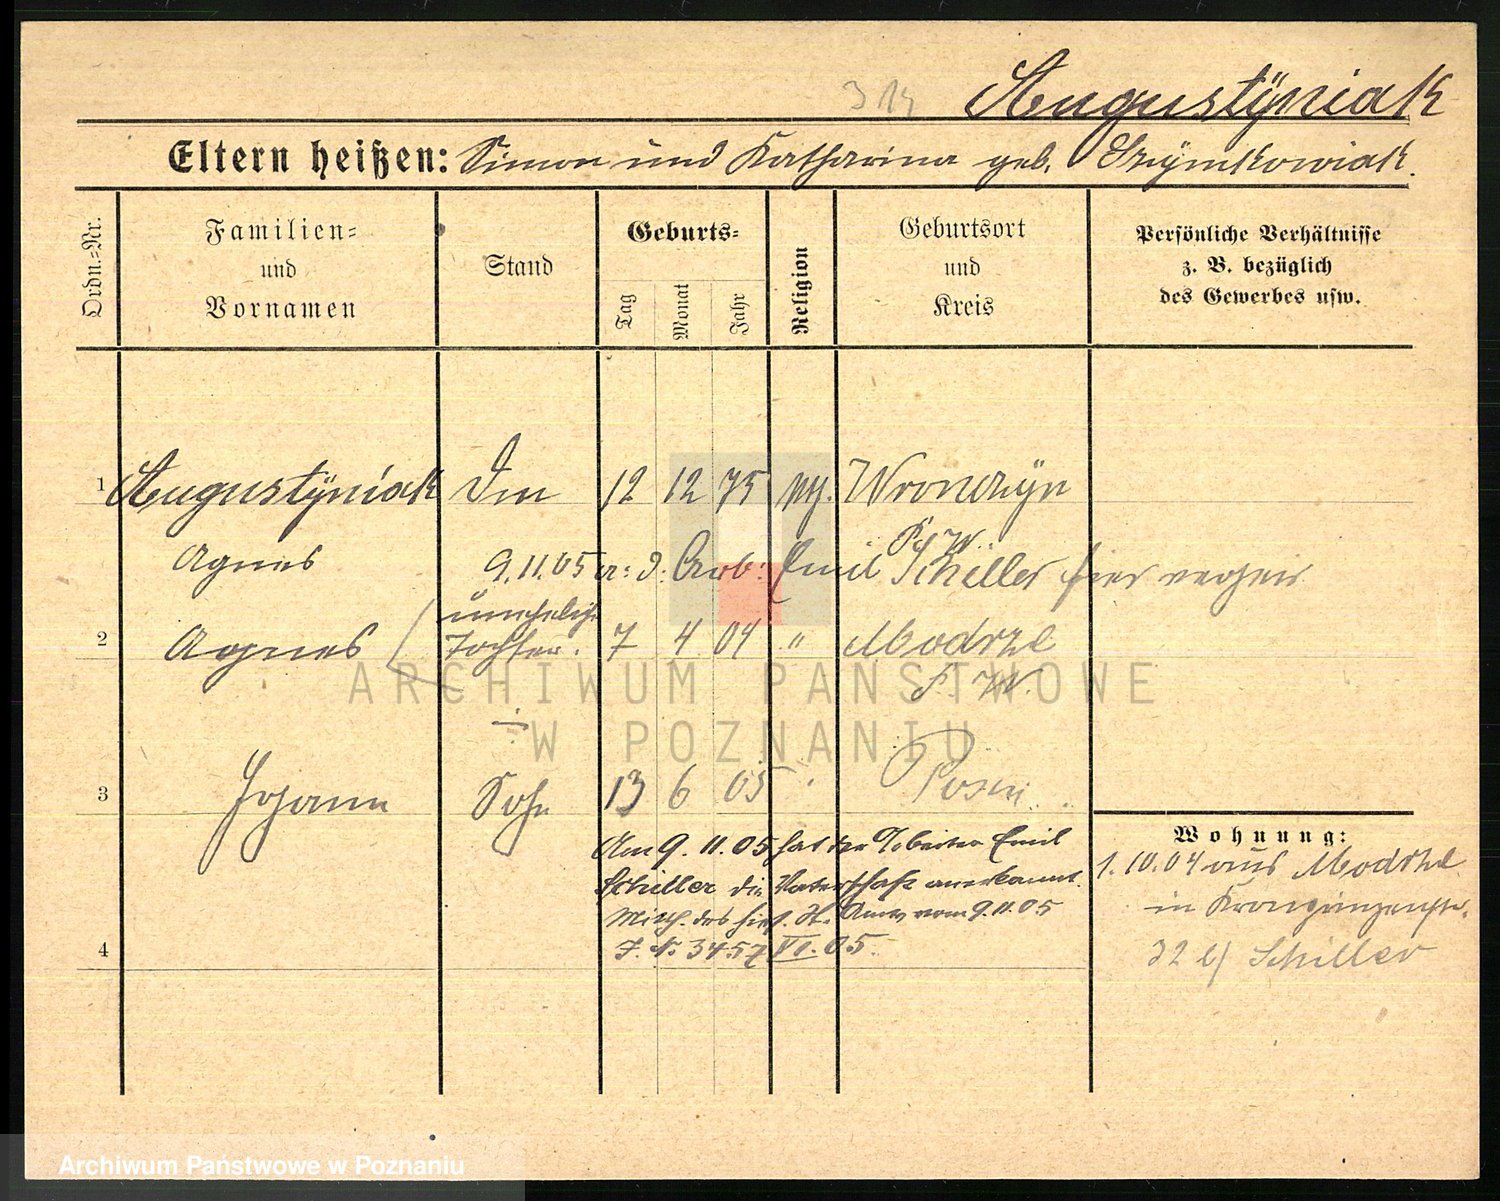 314 Augustÿniak
Eltern heißen: Simon und Katharina geb. Szÿmkowiak.
Ordn.-Nr.
Familien= und Vornamen
Stand
Geburts=
Tag
Monat
Jahr
Religion
Geburtsort und Kreis
Persönliche Verhältnisse z. B. bezüglich des Gewerbes usw.
1 Augustÿniak 12 12 75 Wronczÿn
P. W.
Agnes 9.11.05 Arb: Emil Schiller hier
2 Agnes uneheliche Tochter. 7 4 04 " Modrze
P. W.
3 Johann Sohn 13 6 05 Posen
Am 9. 11. 05 hat der Arbeiter Emil
Schiller die Vaterschaft anerkannt.
Mitth. des hies. St. Amts vom 9.11.05
J. N. 3457 VI. 05.
4
Wohnung:
1.10.04 aus Modrze
in Kronprinzenstr.
32 b/ Schiller
ARCHIWUM PAŃSTWOWE
W POZNANIU
Archiwum Państwowe w Poznaniu